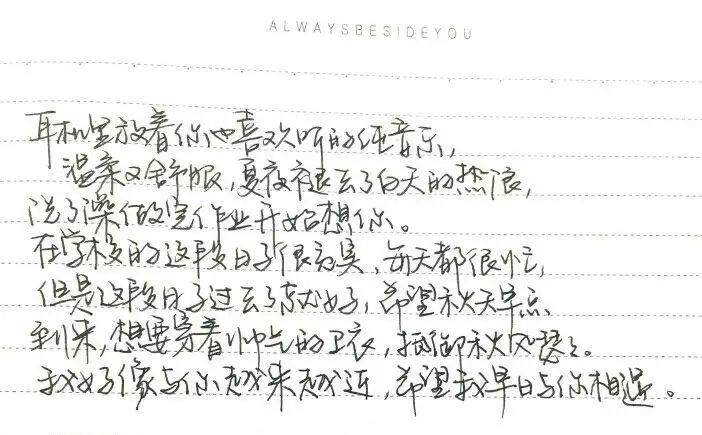 ALWAYSBESIDEYOU
耳机里放着你也喜欢听的纯音乐,
温柔又舒服,夏夜褪去了白天的热浪,
洗了澡做完作业开始想你。
在学校的这段日子很充实、每天都很忙,
但是这段日子过去了就好,希望秋天早点
到来,想要穿着帅气的卫衣,抵御秋风瑟瑟。
我好像与你越来越近,希望我早日与你相遇。